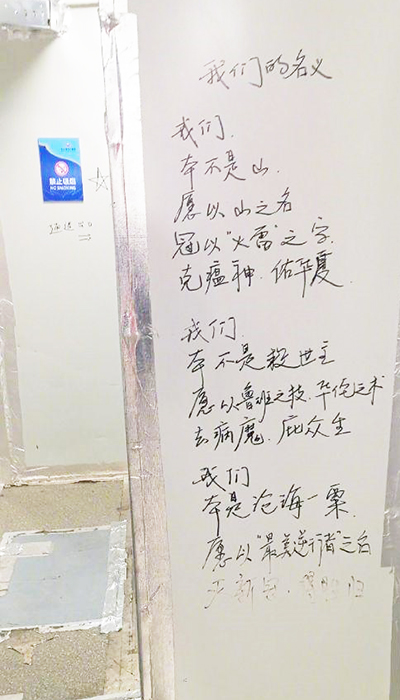 我们的名义
我们.
本不是山.
愿以山之名
冠以“火雷”之字.
克瘟神.佑华夏.
我们.
本不是救世主
愿以鲁班之技.华佗之术
去病魔.庇众生
我们
本是沧海一粟.
愿以“最美逆行者”之名
禁止吸烟
NO SMOKING